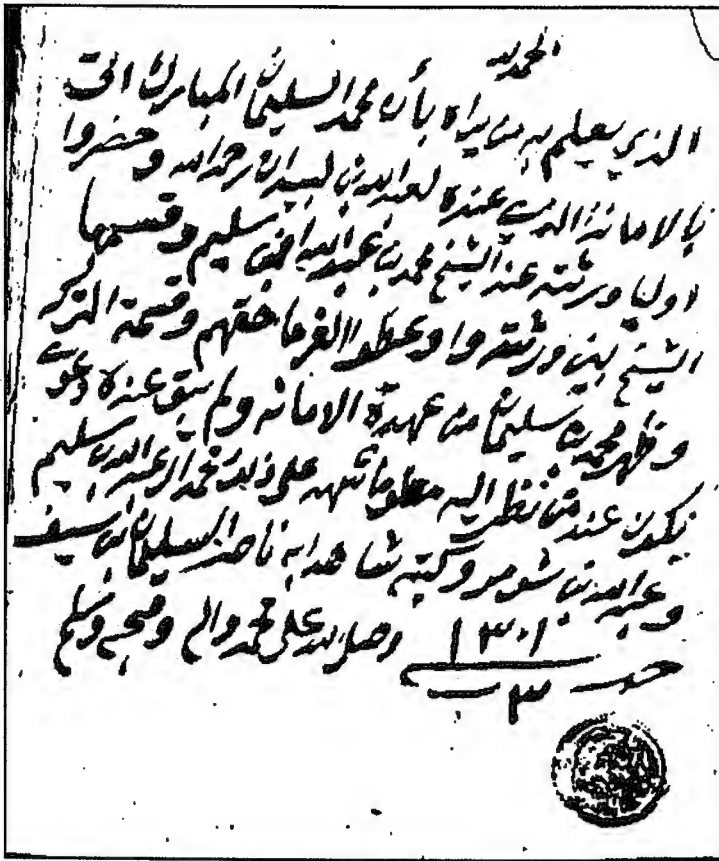 الحمد لله
الذي يعلم به من يراه بأن محمد السليمان المبارك اتى
بالامانة الذي عنده لعبدالله بن لبيدان رحمه الله وحضروا
اوليا ورثته عند الشيخ محمد بن عبدالله بن سليم وقسمها
الشيخ بين ورثته واوعطوا الغرما حقهم وقسمة
وظهر محمد بن سليمان من عهدة الامانه ولم يبق عنده دعوى
يكون عند من نظر اليه معلوما شهد على ذلك محمد ال عبدالله بن سليم
وعبدالله بن شومر وكتبه شاهدا به ناصر السليمان بن سيف
١٣٠١ وصلى الله على محمد واله وصحبه وسلم
٣